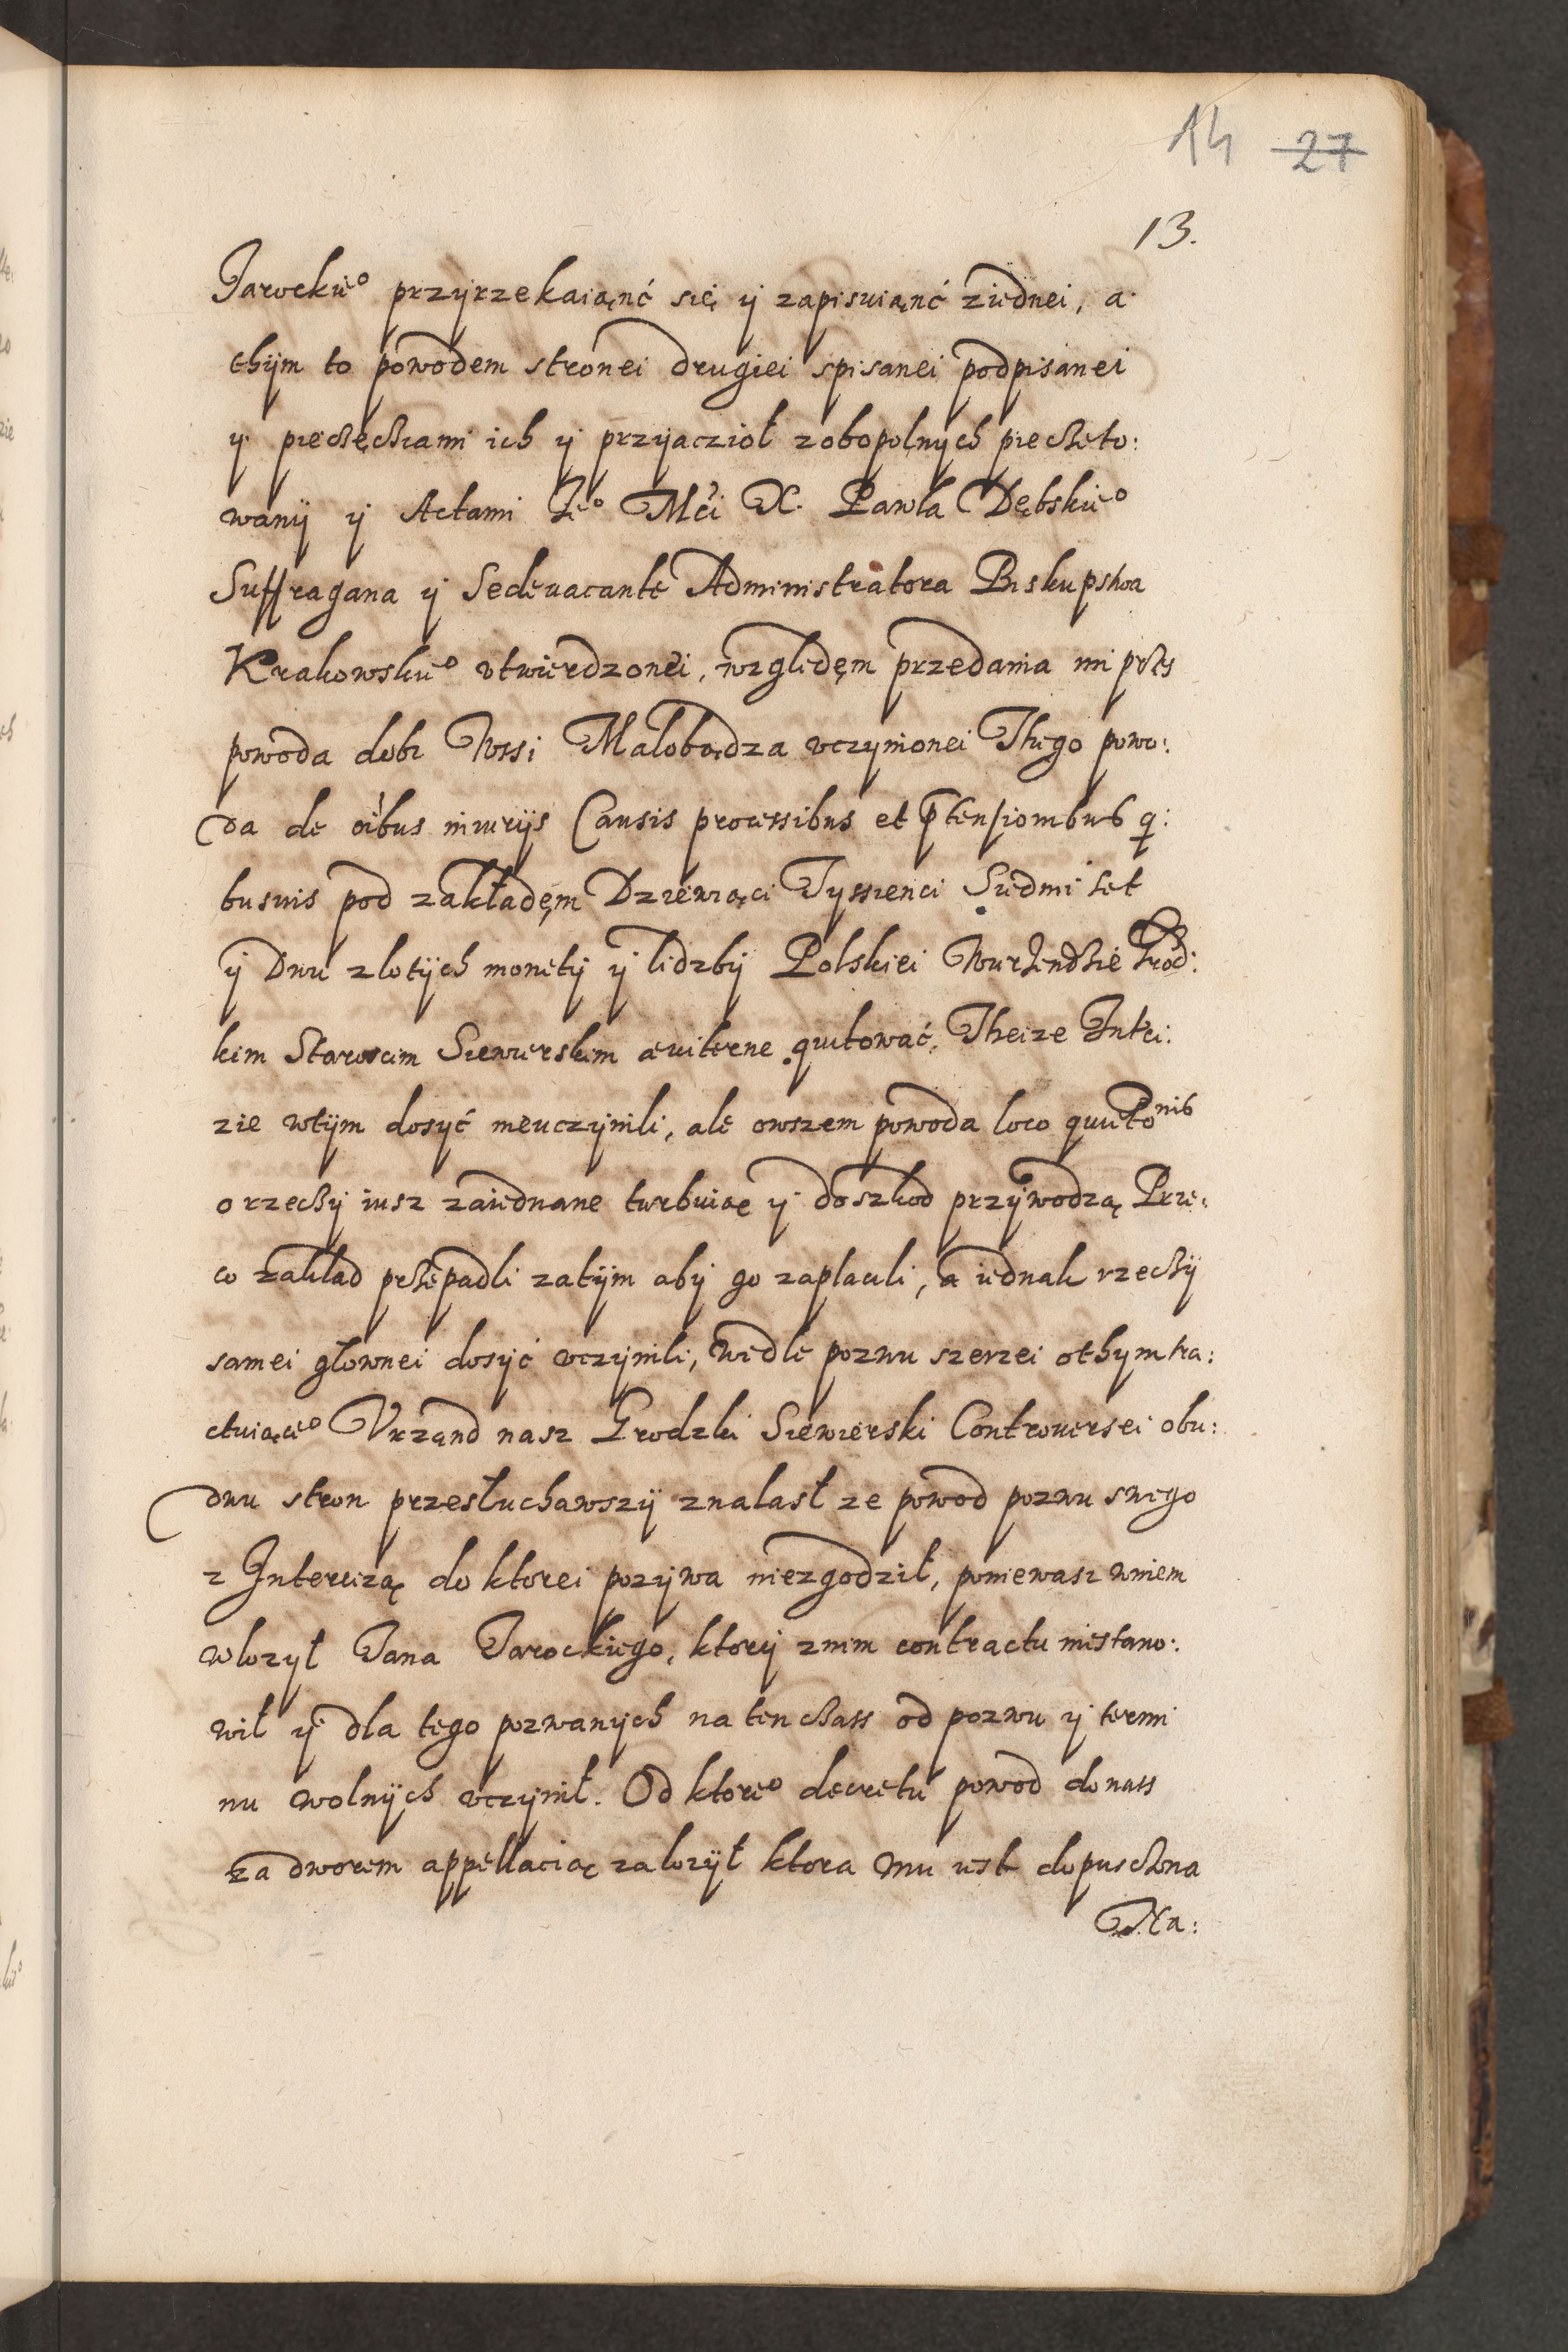 14 27
13.
Jarockie⁰ przyrzekaiąnć się y zapisuiąnć ziednei, a
thym to powodem stronei drugiei spisanei podpisanei
y pieczęćiami ich y przyiaczioł zobopolnych pieczęto:
wany y Actami Je⁰ Mci X. Pawła Dębskie⁰
Suffragana y Sedeuacante Administratora Biskupstwa
Krakowskie⁰ vtwierdzonei, względęm przedania mi przs
powoda dobr Wssi Małobądza vczynionei Thego powo:
da de oibus iniuriis Causis processibus et ptensionibus q:
busuis pod zakładęm Dziewiąci Tyssienci Siedmi set
y Dwu zlotych monety y lidzby Polskiei Wurzendzie Grod:
kim Staroscim Siewierskim æuiterne quitować, Theize Intei:
zie wtym dosyć nieuczynili, ale owszem powoda loco quietonis
o rzeczy iusz zaiednane turbuiąc y doszkod przywodzą Prze:
co zakład przepadli zatym aby go zaplacili, a iednak rzeczy
samei głownei dosyć vczynili, wedle pozwu szerzei othym tra:
ctuiące⁰ Vrząnd nasz Grodzki Siewierski Controuersei obu:
dwu stron przesłuchawszy znalasł ze powod pozwu swego
z Intercizą do ktorei pozywa niezgodził, poniewasz wniem
włozył Jana Jarockiego, ktory znim contractu niestano:
wił y dla tego pozwanych na ten czass od pozwu y termi
nu wolnych vczynił. Od ktore⁰ decretu powod do nass
za dworem appellacią załozył ktora mu iest dopusczona
Na: